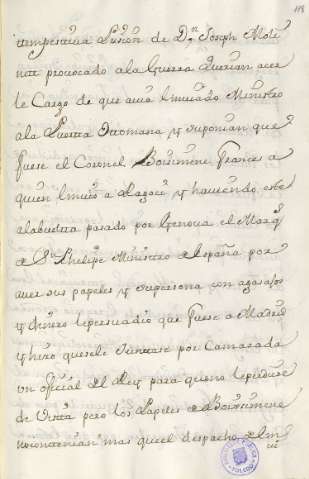 118
tempestiua Prision de D.n Joseph Moli
nes prouocado ala Guerra Querian acer
le Cargo de que auia Imuiado Ministro
ala Puerta Ottomana y suponian que
fuese el Coronel Boisimene Frances a
quien Imuio a Ragoci y hauiendo este
alabuelta pasado por Genoua el Marq.s
de S.n Phelipe Ministro de España por
auer sus papeles y su persona con agasajos
y dinero le persuadio que fuese a Madrid
y hizo que sele Juntase por Camarada
vn oficial del Rey para que no le perdiese
de Vista pero los Papeles de Boisimene
no contenian mas que el despacho de Im